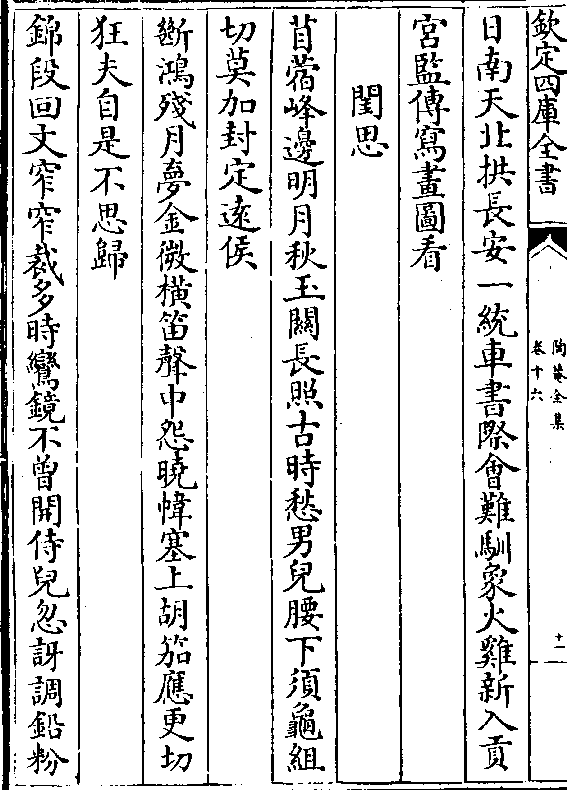 欽定四庫全書
陶菴全集
卷十六
十一
日南天北拱長安一統車書際會難馴象火雞新入貢
宮監傳寫畫圖看
閨思
苜蓿峰邊明月秋玉關長照古時愁男兒腰下須龜組
切莫加封定遠侯
斷鴻殘月夢金微橫笛聲中怨曉幃塞上胡笳應更切
狂夫自是不思歸
錦段回文窄窄裁多時鸞鏡不曾開侍兒忽訝調鉛粉